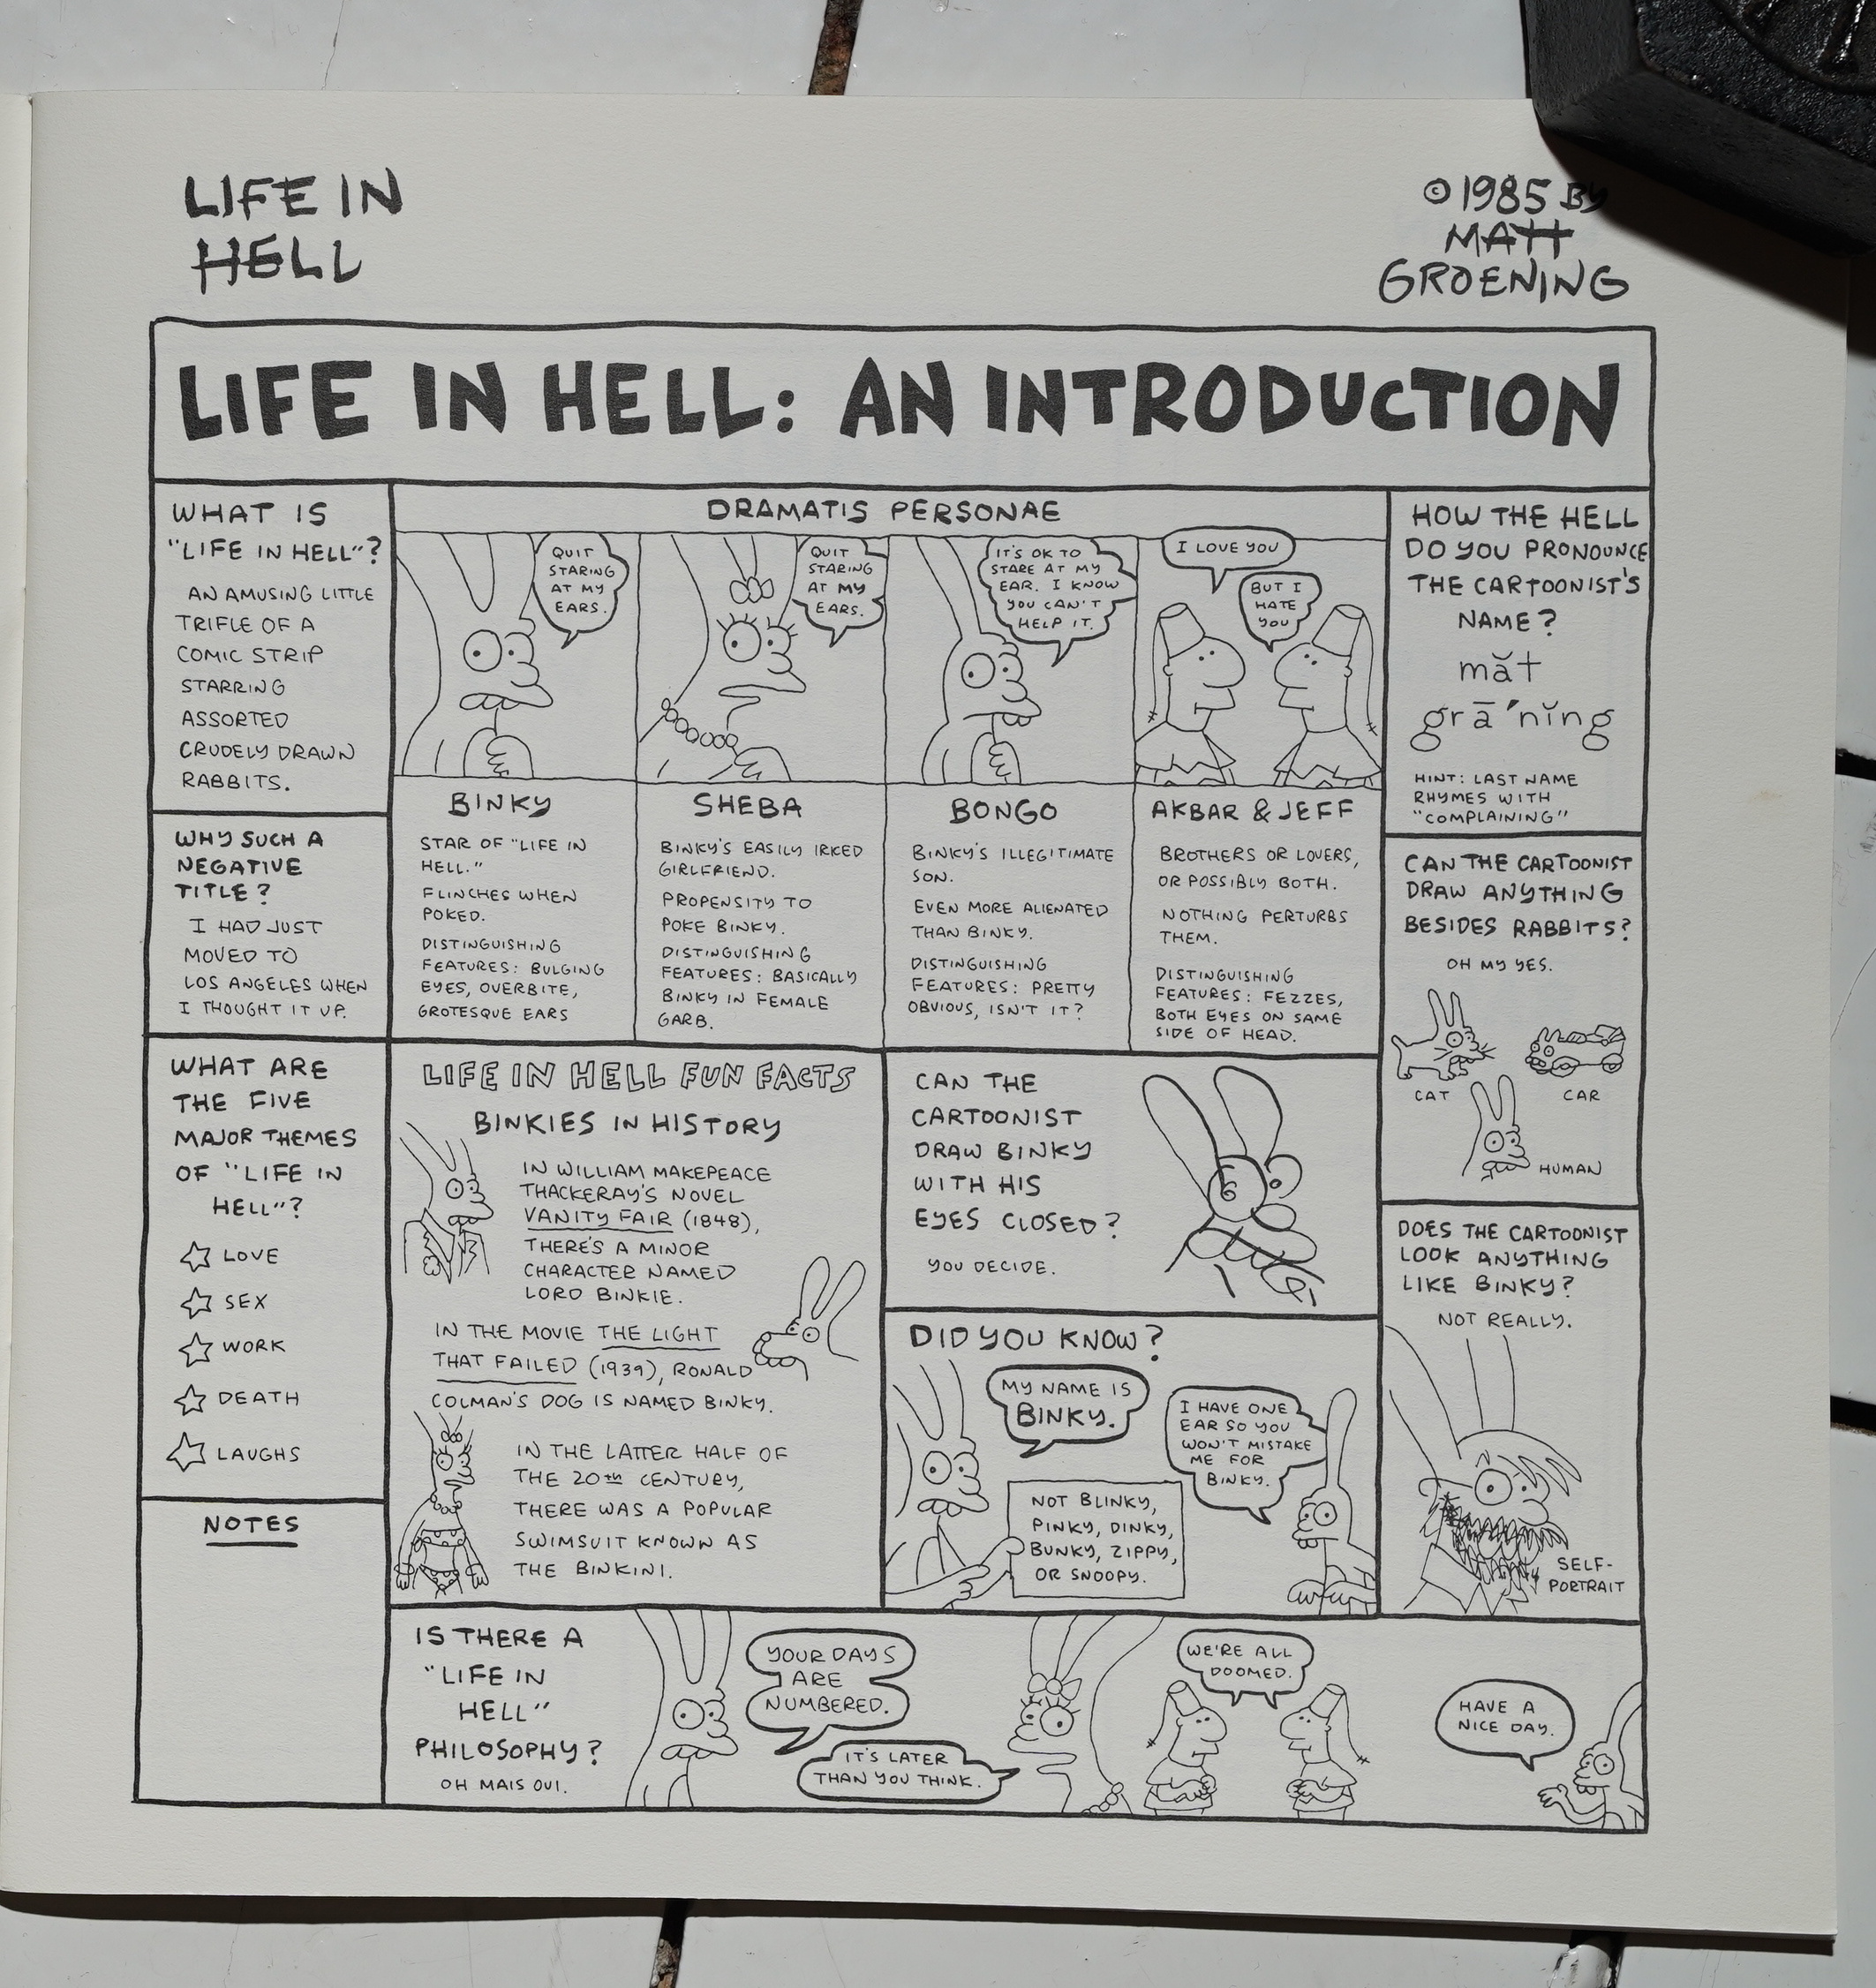 LIFE IN
HELL
© 1985 BY
MATT
GROENING
LIFE IN HELL: AN INTRODUCTION
WHAT IS
"LIFE IN HELL"?
AN AMUSING LITTLE
TRIFLE OF A
COMIC STRIP
STARRING
ASSORTED
CRUDELY DRAWN
RABBITS.
WHY SUCH A
NEGATIVE
TITLE?
I HAD JUST
MOVED TO
LOS ANGELES WHEN
I THOUGHT IT UP.
WHAT ARE
THE FIVE
MAJOR THEMES
OF "LIFE IN
HELL"?
LOVE
SEX
WORK
DEATH
LAUGHS
NOTES
DRAMATIS PERSONAE
QUIT
STARING
AT MY
EARS.
BINKY
STAR OF "LIFE IN
HELL."
FLINCHES WHEN
POKED.
DISTINGUISHING
FEATURES: BULGING
EYES, OVERBITE,
GROTESQUE EARS
QUIT
STARING
AT MY
EARS.
SHEBA
BINKY'S EASILY IRKED
GIRLFRIEND.
PROPENSITY TO
POKE BINKY.
DISTINGUISHING
FEATURES: BASICALLY
BINKY IN FEMALE
GARB.
IT'S OK TO
STARE AT MY
EAR. I KNOW
YOU CAN'T
HELP IT.
BONGO
BINKY'S ILLEGITIMATE
SON.
EVEN MORE ALIENATED
THAN BINKY.
DISTINGUISHING
FEATURES: PRETTY
OBVIOUS, ISN'T IT?
I LOVE YOU
BUT I
HATE
YOU
AKBAR & JEFF
BROTHERS OR LOVERS,
OR POSSIBLY BOTH.
NOTHING PERTURBS
THEM.
DISTINGUISHING
FEATURES: FEZZES,
BOTH EYES ON SAME
SIDE OF HEAD.
HOW THE HELL
DO YOU PRONOUNCE
THE CARTOONIST'S
NAME?
măt
grā´nĭng
HINT: LAST NAME
RHYMES WITH
"COMPLAINING"
CAN THE CARTOONIST
DRAW ANYTHING
BESIDES RABBITS?
OH MY YES.
CAT
CAR
HUMAN
DOES THE CARTOONIST
LOOK ANYTHING
LIKE BINKY?
NOT REALLY.
SELF-
PORTRAIT
LIFE IN HELL FUN FACTS
BINKIES IN HISTORY
IN WILLIAM MAKEPEACE
THACKERAY'S NOVEL
VANITY FAIR (1848),
THERE'S A MINOR
CHARACTER NAMED
LORD BINKIE.
IN THE MOVIE THE LIGHT
THAT FAILED (1939), RONALD
COLMAN'S DOG IS NAMED BINKY.
IN THE LATTER HALF OF
THE 20TH CENTURY,
THERE WAS A POPULAR
SWIMSUIT KNOWN AS
THE BINKINI.
CAN THE
CARTOONIST
DRAW BINKY
WITH HIS
EYES CLOSED?
YOU DECIDE.
DID YOU KNOW?
MY NAME IS
BINKY.
NOT BLINKY,
PINKY, DINKY,
BUNKY, ZIPPY,
OR SNOOPY.
I HAVE ONE
EAR SO YOU
WON'T MISTAKE
ME FOR
BINKY.
IS THERE A
"LIFE IN
HELL"
PHILOSOPHY?
OH MAIS OUI.
YOUR DAYS
ARE
NUMBERED.
IT'S LATER
THAN YOU THINK.
WE'RE ALL
DOOMED.
HAVE A
NICE DAY.